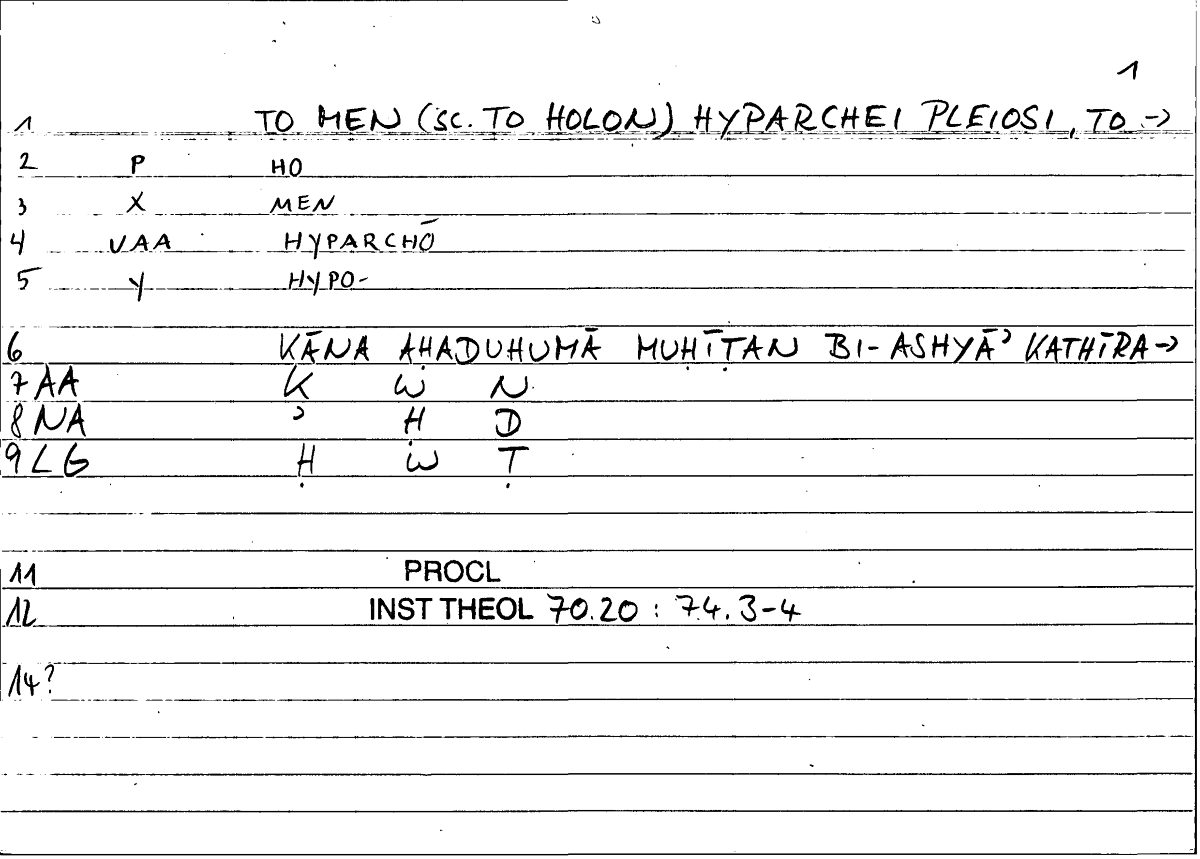 1
1 TO MEN (SC. TO HOLON) HYPARCHEI PLEIOSI, TO →
2 P HO
3 X MEN
4 VAA HYPARCHŌ
5 Y HYPO-
6 KĀNA AḤADUHUMĀ MUḤĪṬAN BI-ASHYĀʾ KATHĪRA→
7 AA K W N
8 NA ʾ Ḥ D
9 LG Ḥ W Ṭ
11 PROCL
12 INST THEOL 70.20 : 74.3-4
14?